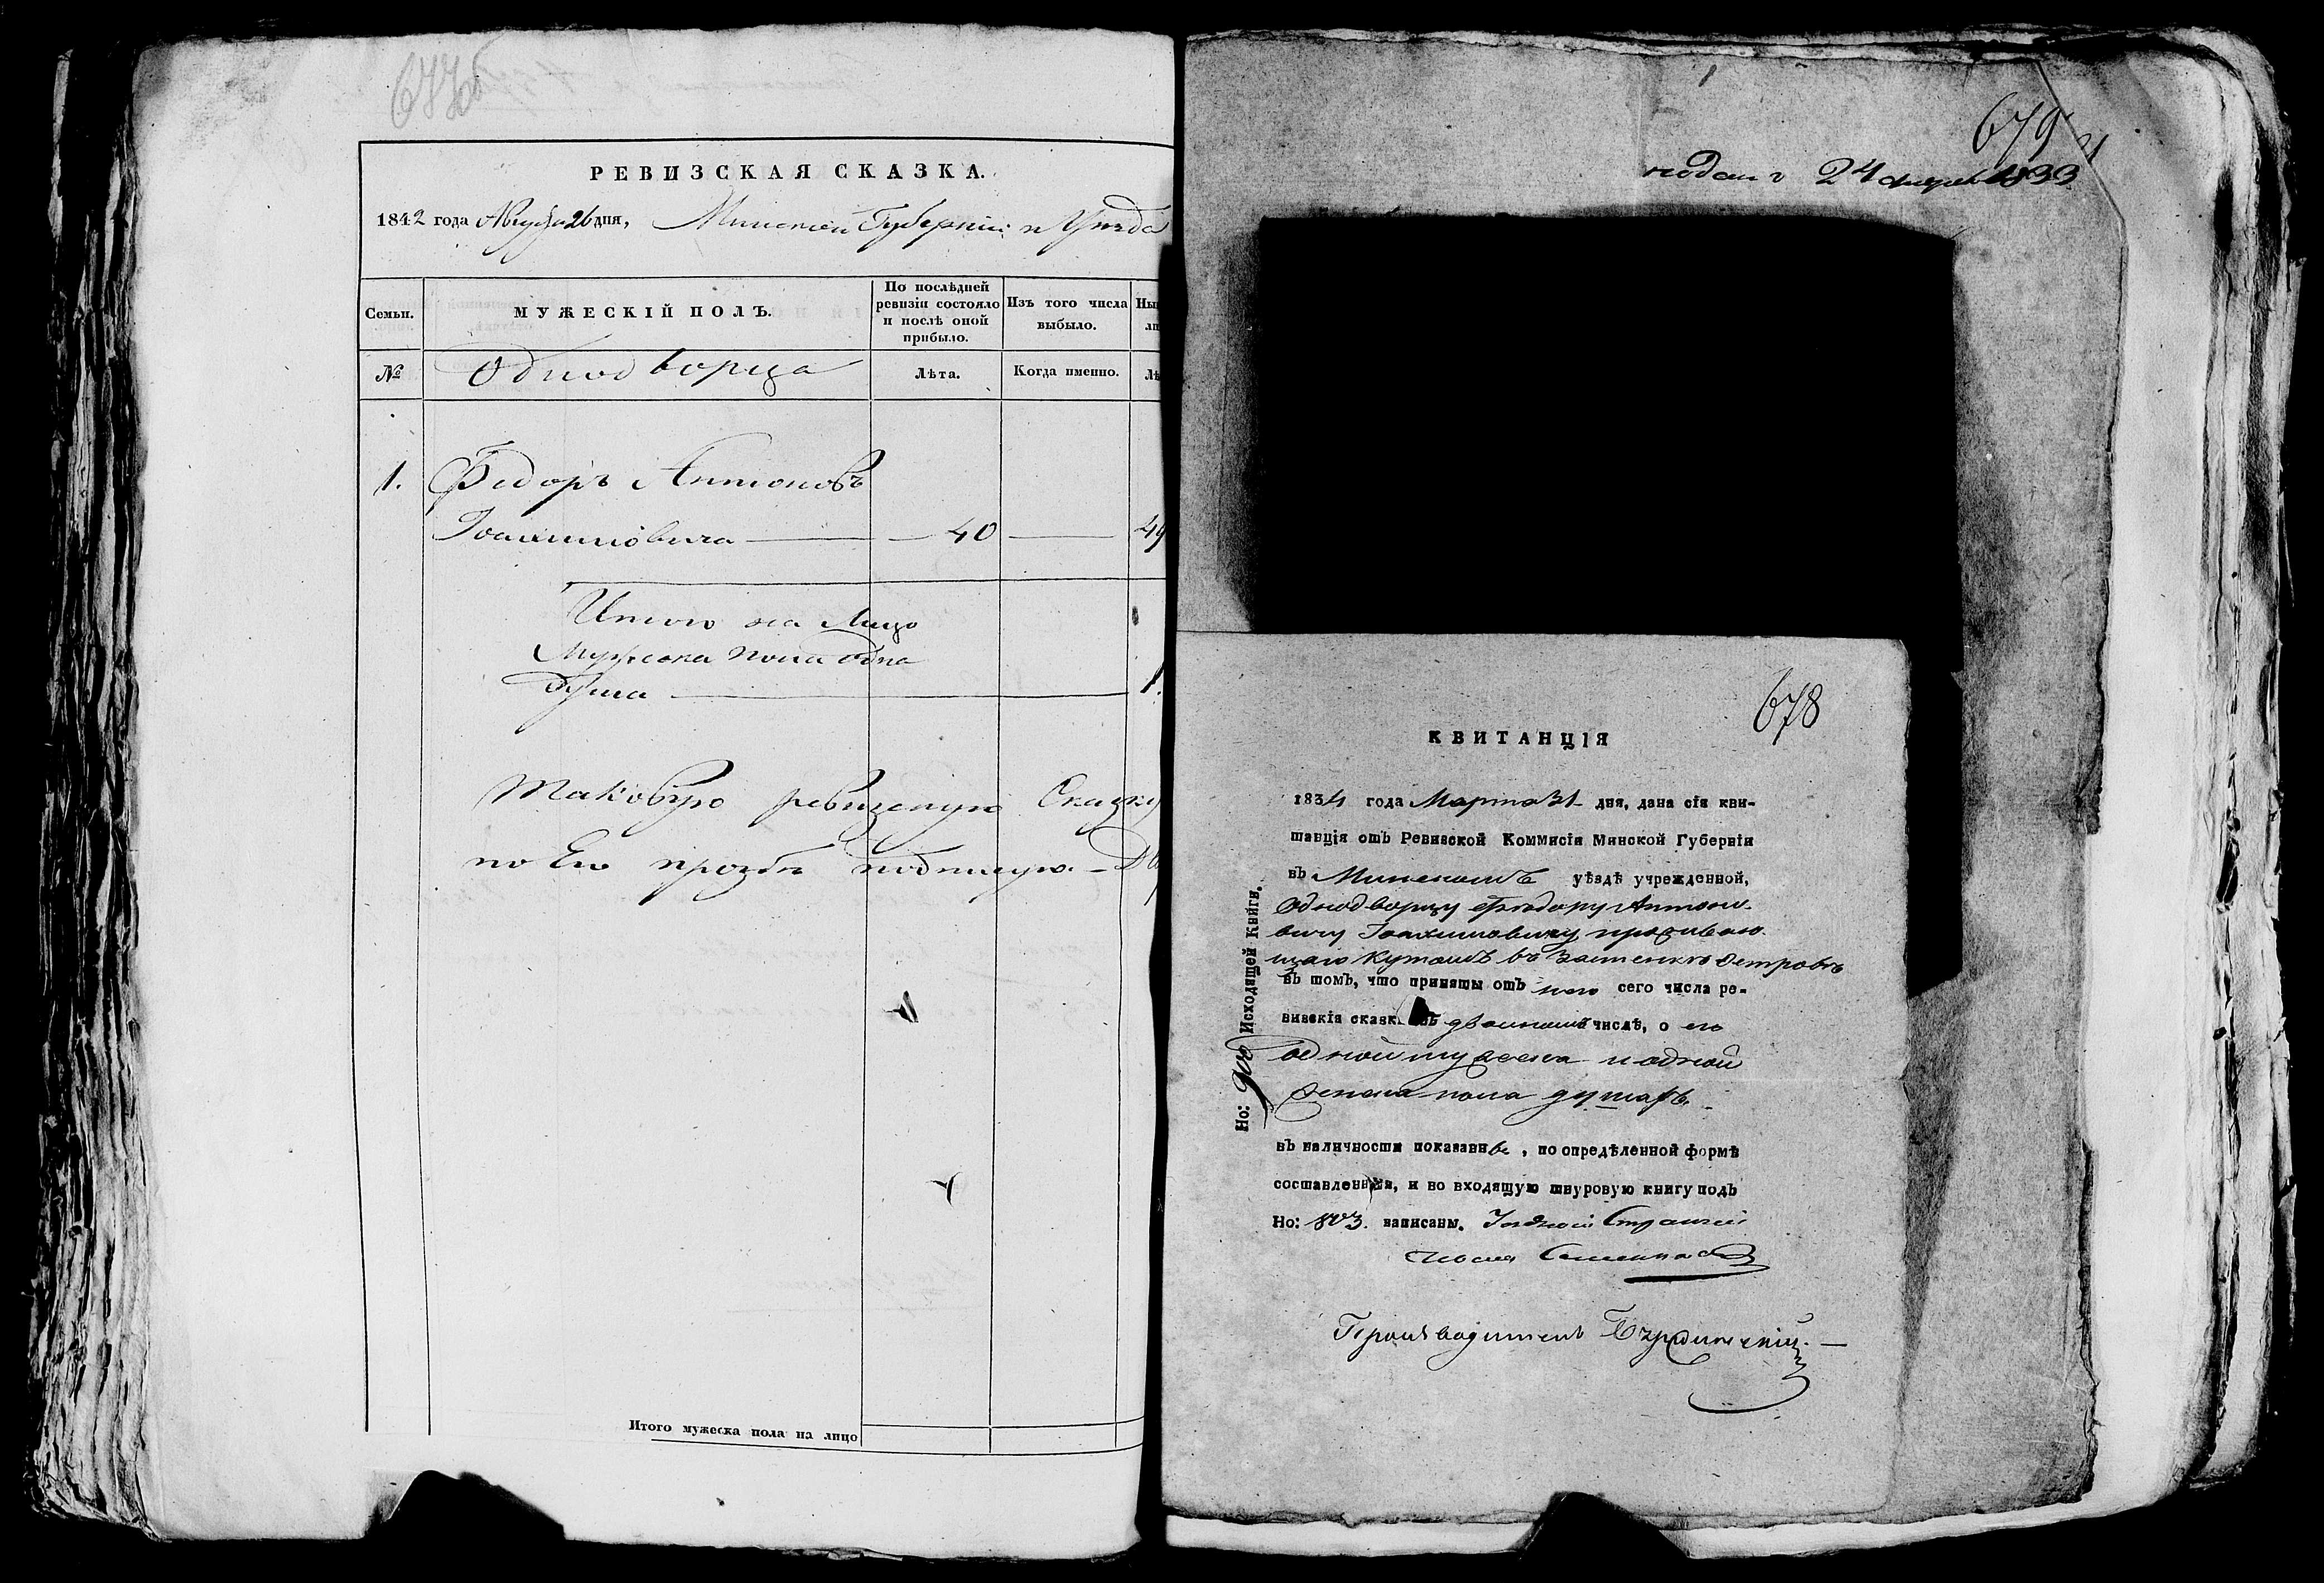 677об
РЕВИЗСКАЯ СКАЗКА.
1842 года Августа 26 дня, Минской Губерніи и Уѣзда
Семьи.
МУЖЕСКІЙ ПОЛЪ.
По послѣдней ревизіи состояло и послѣ оной прибыло.
Изъ того числа выбыло.
№
Однодворца
Лѣта.
Когда именно.
1. Федоръ Антоновъ
Іоахимовича — 40 — 49
Итого на Лицо
Мужеска пола одна
душа — 1.
Таковую ревизскую Сказку
по Его прозбѣ подписую
Итого мужеска пола на лицо
679
24 1833
678
КВИТАНЦІЯ
1834 года Марта 31 дня, дана сія кви-
танція отъ Ревизской Коммисіи Минской Губерніи
въ Минскомъ уѣздѣ учрежденной,
Однодворцу Ѳеодору Антоно-
вичу Іоахимовичу прожываю-
щаго Кутомъ въ Застенкѣ Островѣ
въ томъ, что приняты отъ него сего числа ре-
визскія сказки въ двойномъ числѣ, о его
одной мужеска и одной
женска пола душахъ
въ наличности показанны, по опредѣленной формѣ
составленныя, и во входящую шнуровую книгу подъ
Но: 803. записаны.
Производитель
Но: 900 Исходящей Книги.